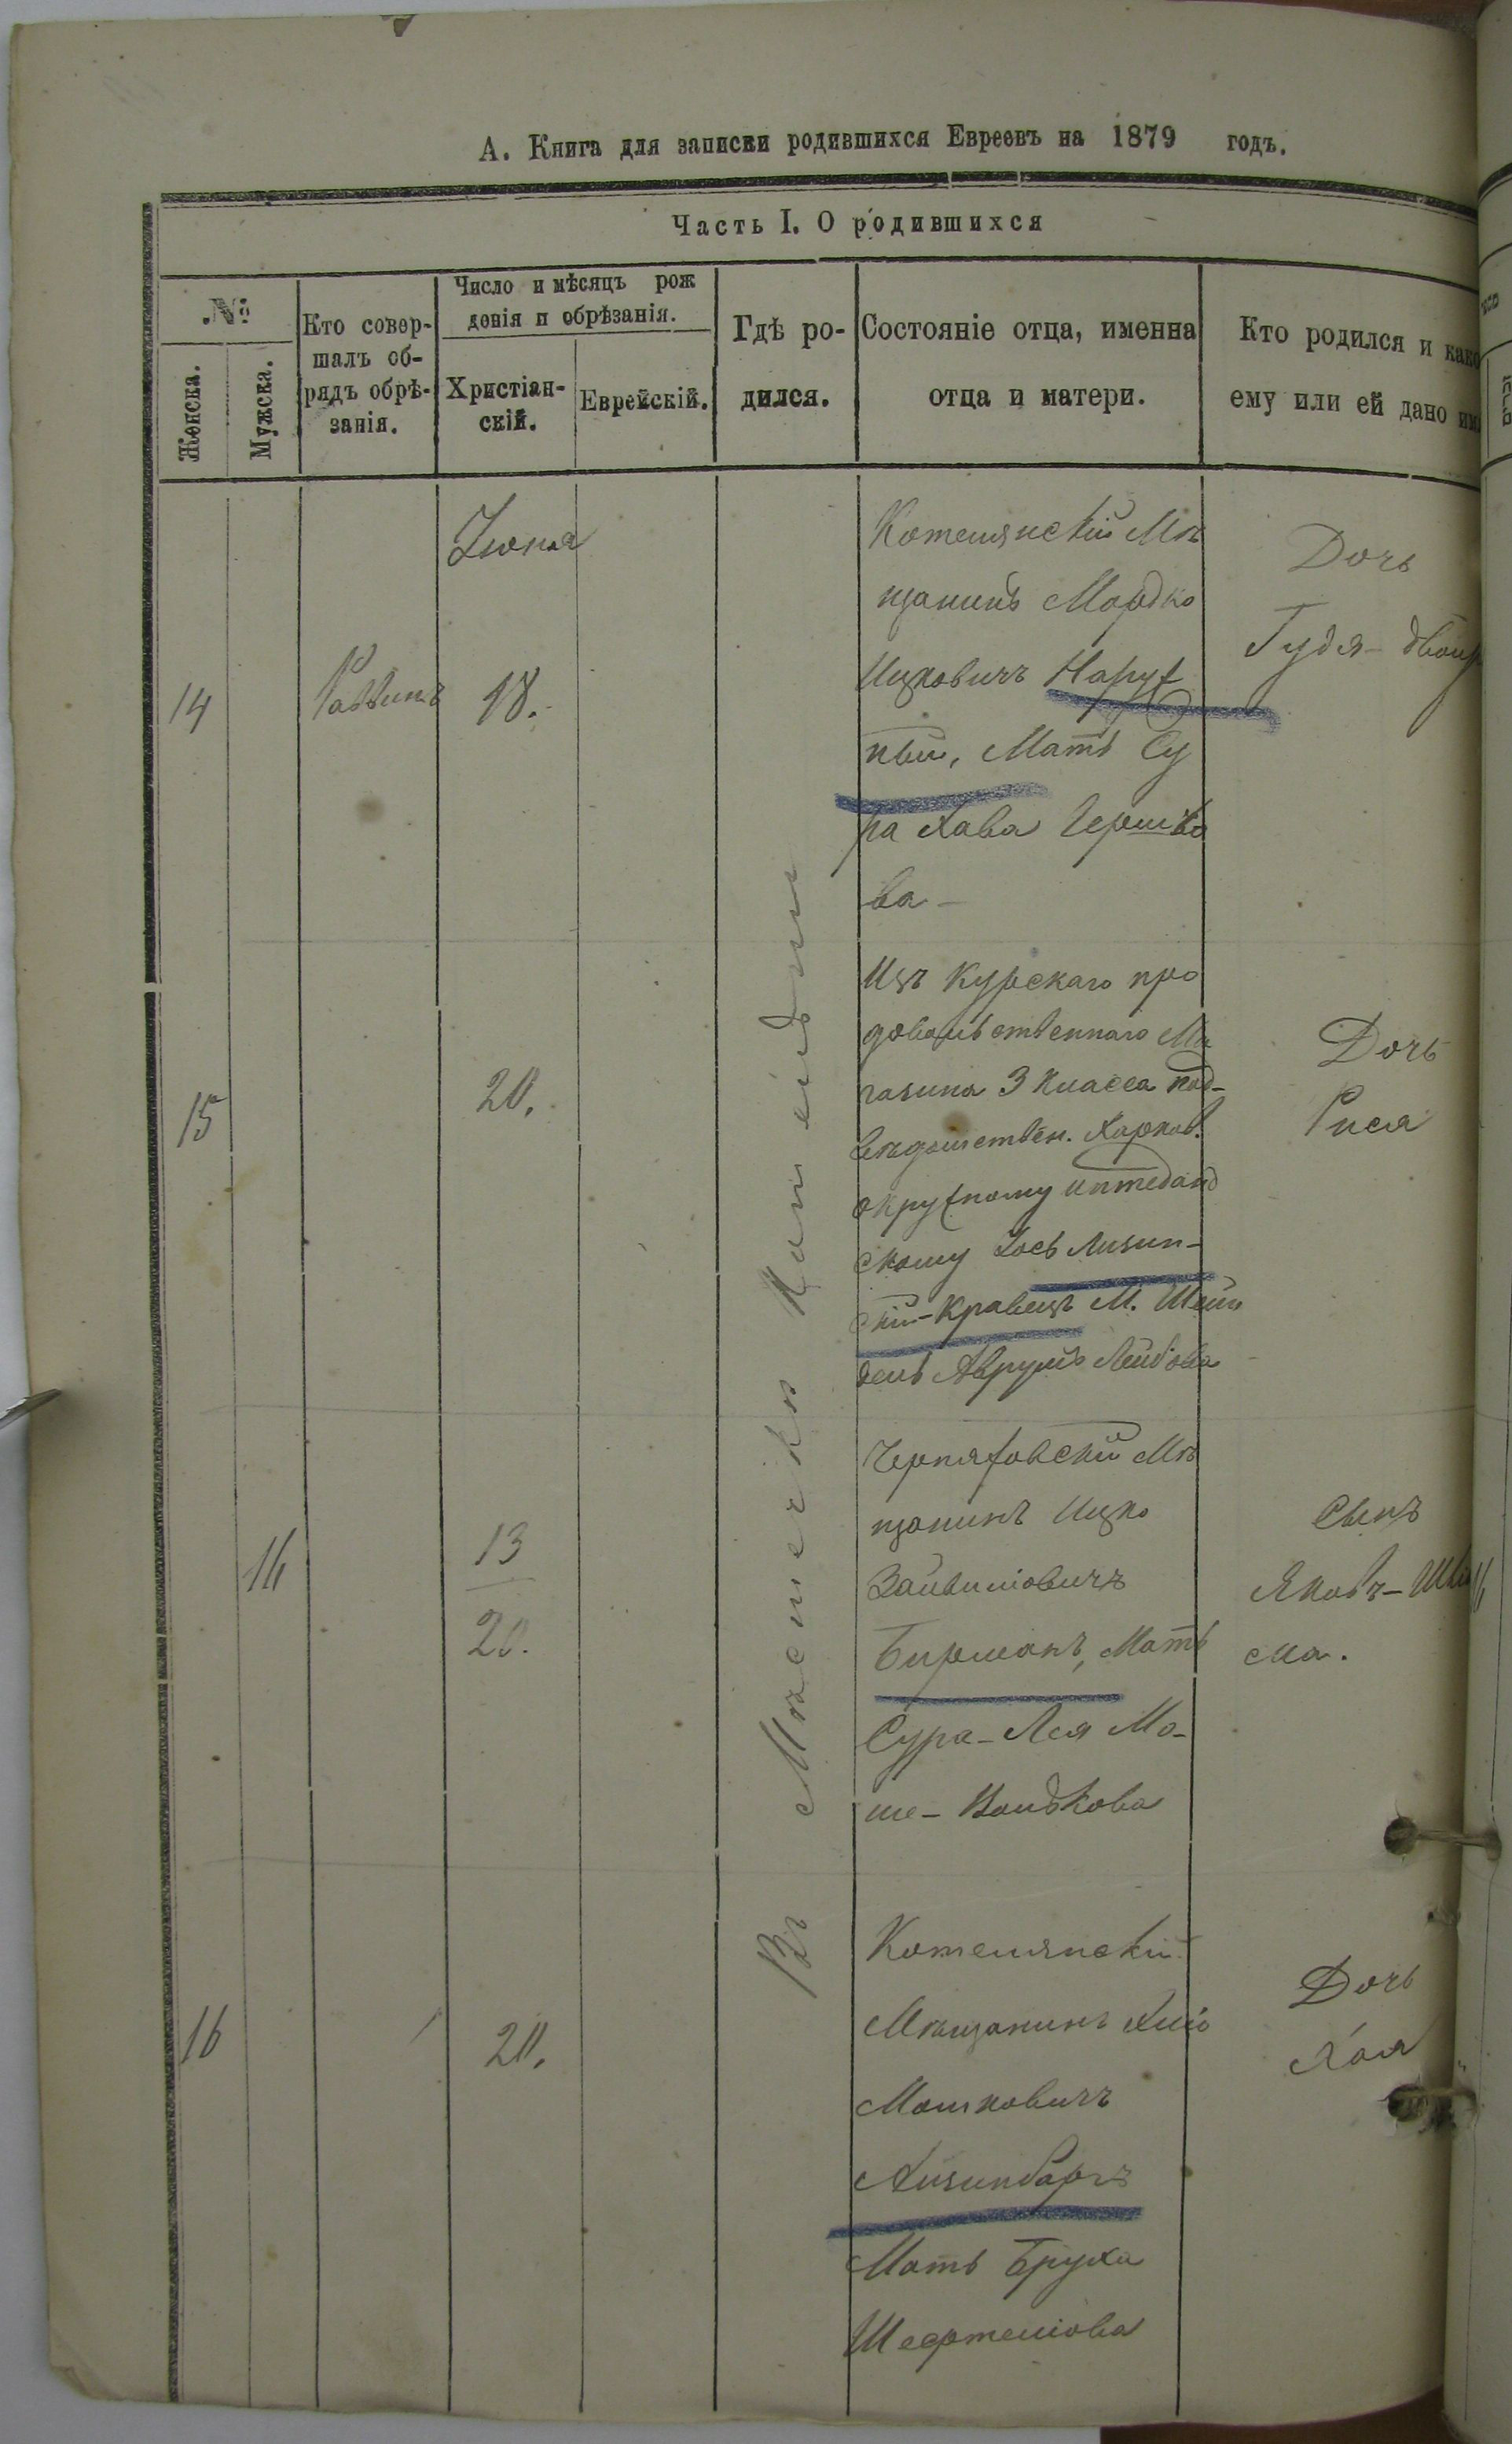 А. Книга для записки родившихся Евреевъ на 1879 годъ.
Часть I. О родившихся
№
Женска.
Мужска.
Кто совер-
шалъ об-
рядъ обрѣ-
занія.
Число и мѣсяцъ рож
денія и обрѣзанія.
Христіан-
скій.
Еврейскій.
Гдѣ ро-
дился.
Состояніе отца, именна
отца и матери.
Кто родился и како
ему или ей дано им
Въ Мѣстечкѣ
14
Раввинъ
Іюня
18.
Котелянскій Мѣ
щанинъ Мордко
Ицковичъ Наруж
ный, Мать Су
ра Хава Гершко
ва-
Дочь
Гудя-двой
15
20.
Изъ Курскаго про
довольственнаго Ма
газина 3 класса под-
вѣдомствен. Харков.
окружному интеданд
скому Іось Лизин-
скій-Кравецъ М. Шейн
Аврумъ Лейбова
Дочь
Рися
14
13
20.
Черняховскій Мѣ
щанинъ Ицко
Зайвиліовичъ
Бирманъ, Мать
Сура-Лея Мо-
ше-Волькова
Сынъ
Яковъ-Шлі
ма.
16
20.
Котелянскій
Мѣщанинъ
Мошковичъ
Айзинбаргъ
Мать Бруха
Дочь
Хая